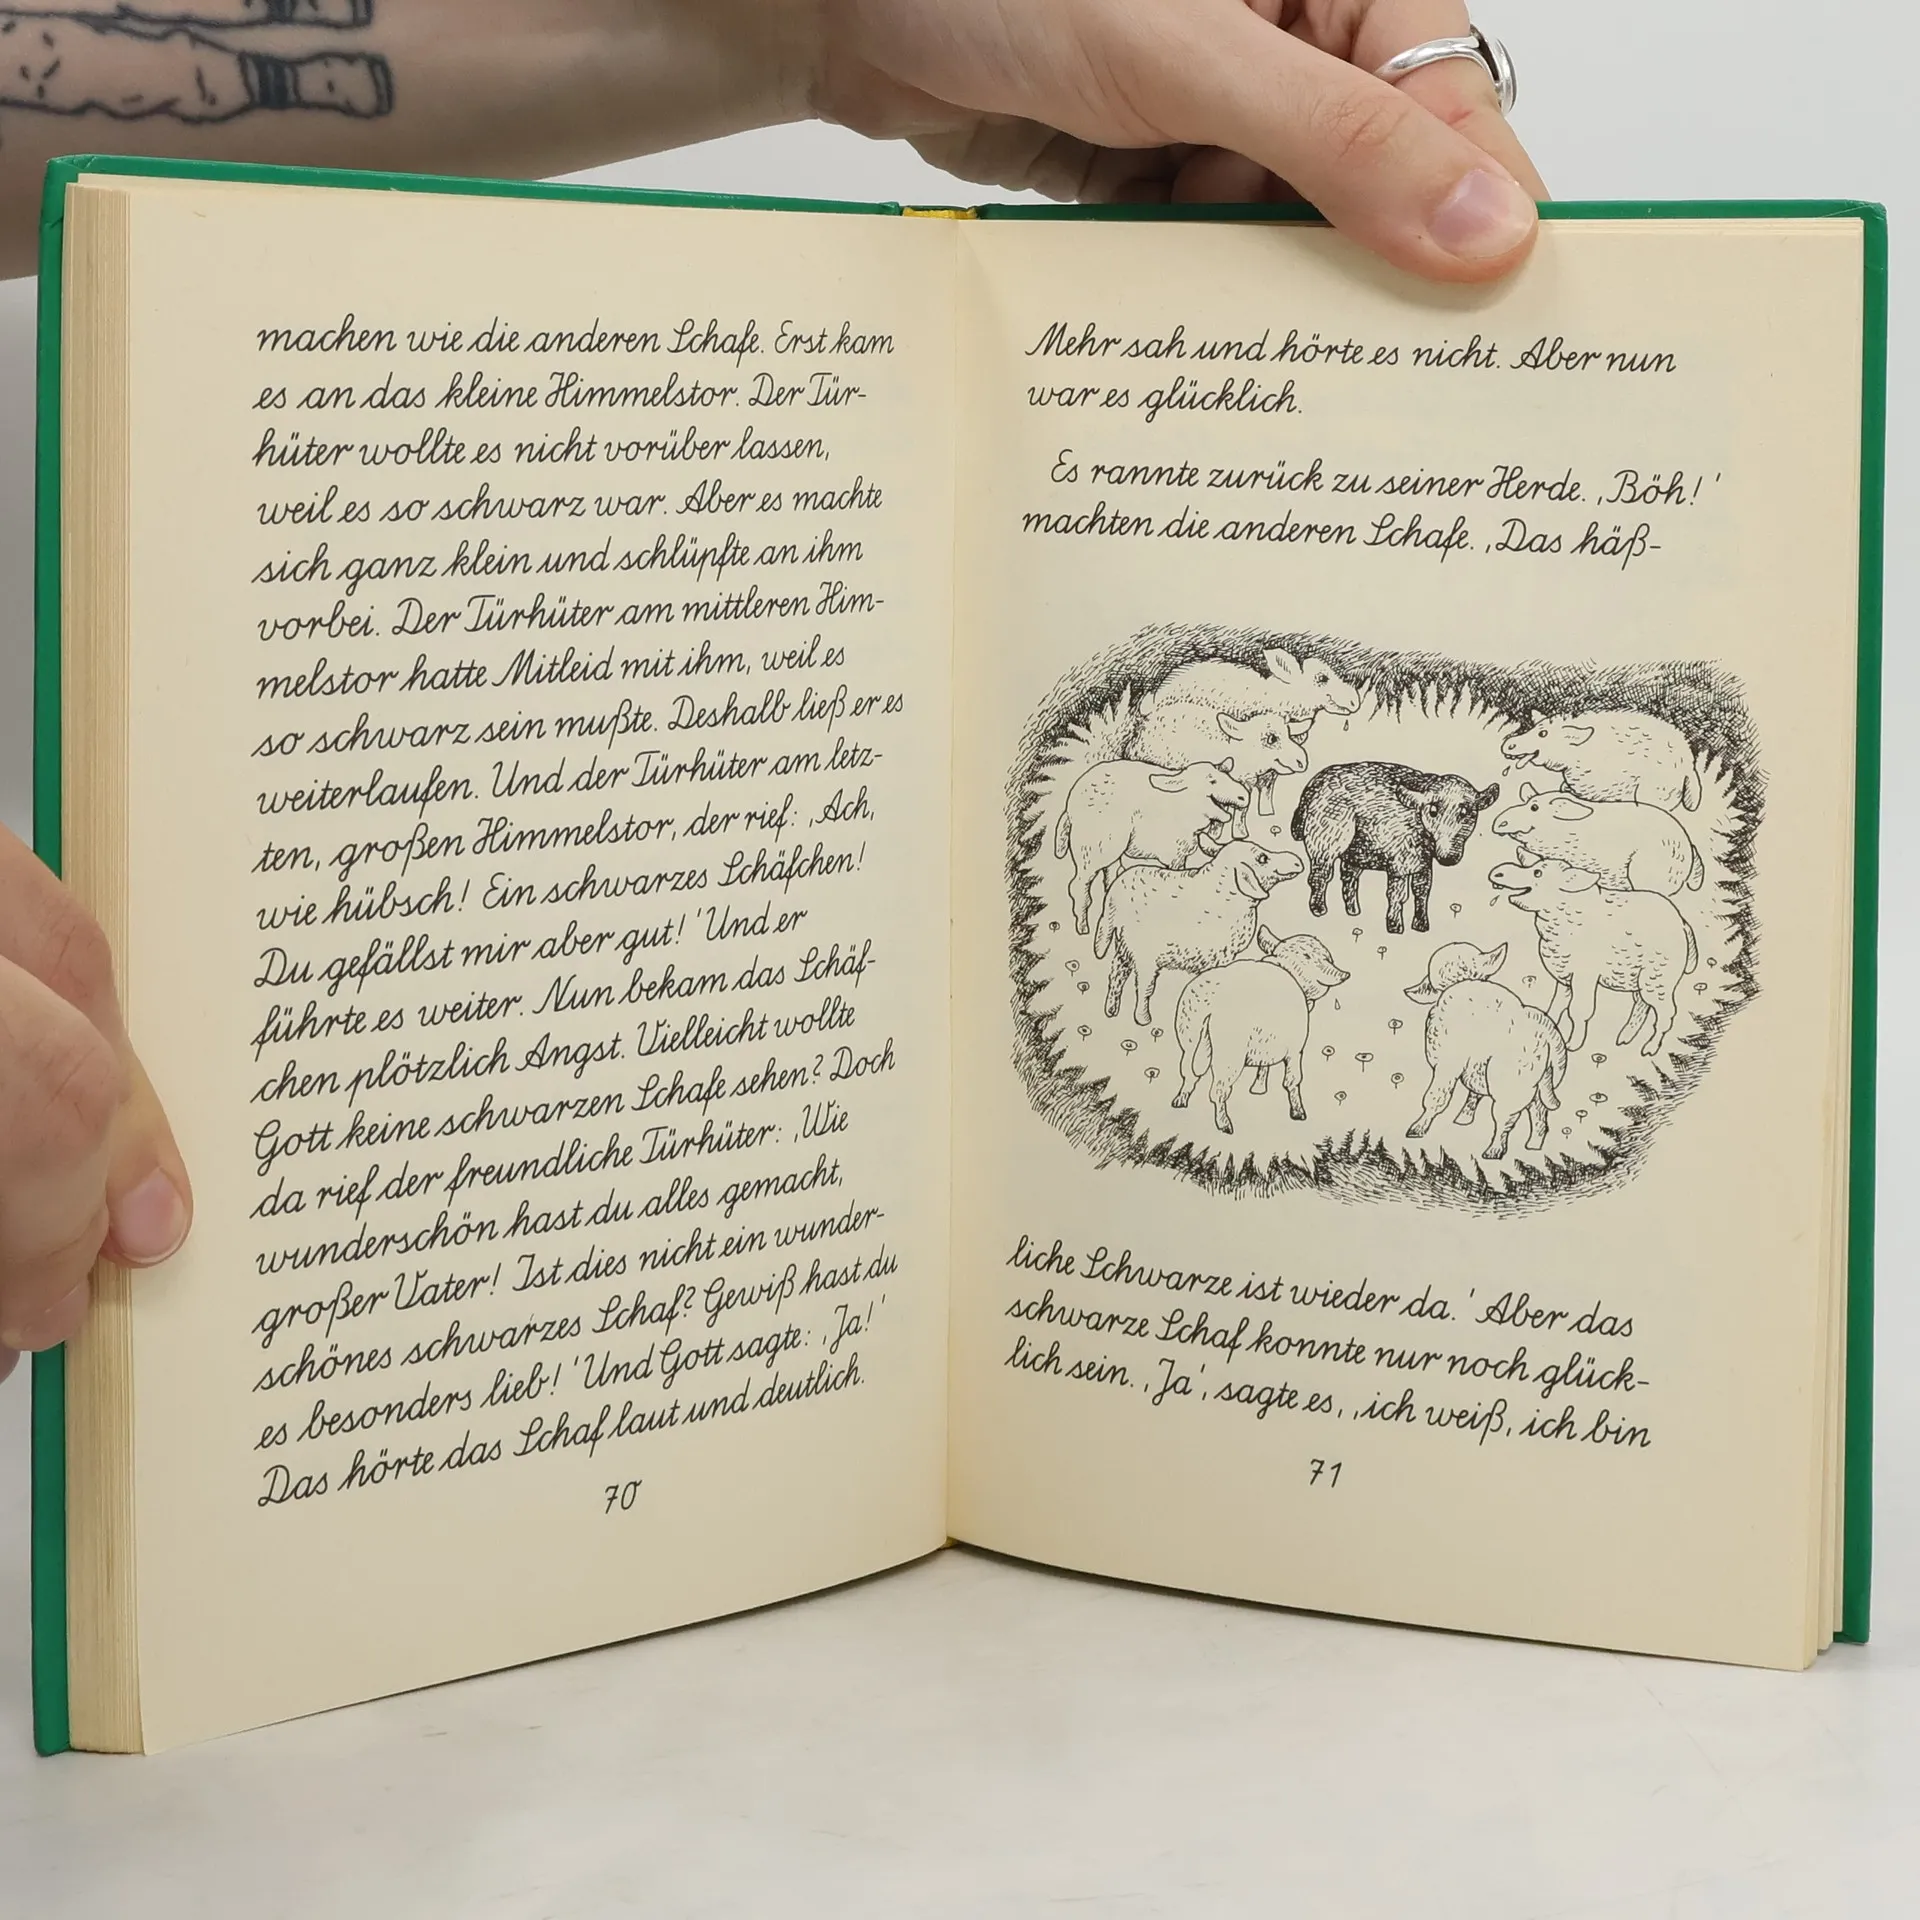 machen wie die anderen Schafe. Erst kam
es an das kleine Himmelstor. Der Tür-
hüter wollte es nicht vorüber lassen,
weil es so schwarz war. Aber es machte
sich ganz klein und schlüpfte an ihm
vorbei. Der Türhüter am mittleren Him-
melstor hatte Mitleid mit ihm, weil es
so schwarz sein mußte. Deshalb ließ er es
weiterlaufen. Und der Türhüter am letz-
ten, großen Himmelstor, der rief: ‚Ach,
wie hübsch! Ein schwarzes Schäfchen!
Du gefällst mir aber gut!' Und er
führte es weiter. Nun bekam das Schäf-
chen plötzlich Angst. Vielleicht wollte
Gott keine schwarzen Schafe sehen? Doch
da rief der freundliche Türhüter: ‚Wie
wunderschön hast du alles gemacht,
großer Vater! Ist dies nicht ein wunder-
schönes schwarzes Schaf? Gewiß hast du
es besonders lieb!' Und Gott sagte: ‚Ja!'
Das hörte das Schaf laut und deutlich.
70
Mehr sah und hörte es nicht. Aber nun
war es glücklich.
Es rannte zurück zu seiner Herde. ‚Böh!'
machten die anderen Schafe. ‚Das häß-
liche Schwarze ist wieder da.' Aber das
schwarze Schaf konnte nur noch glück-
lich sein. ‚Ja', sagte es, ‚ich weiß, ich bin
71